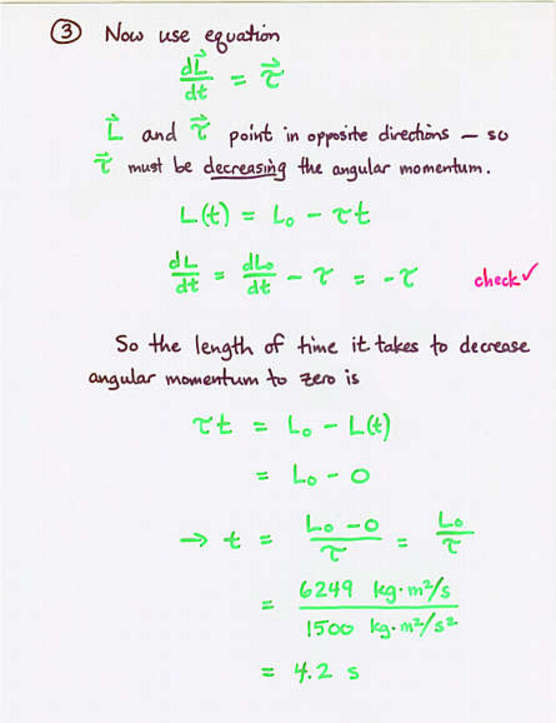 ③ Now use equation
dL⃗/dt = τ⃗
L⃗ and τ⃗ point in opposite directions — so
τ⃗ must be decreasing the angular momentum.
L(t) = L₀ - τt
dL/dt = dL₀/dt - τ = -τ check ✓
So the length of time it takes to decrease
angular momentum to zero is
τt = L₀ - L(t)
= L₀ - 0
→ t = (L₀ - 0)/τ = L₀/τ
= 6249 kg·m²/s / 1500 kg·m²/s²
= 4.2 s